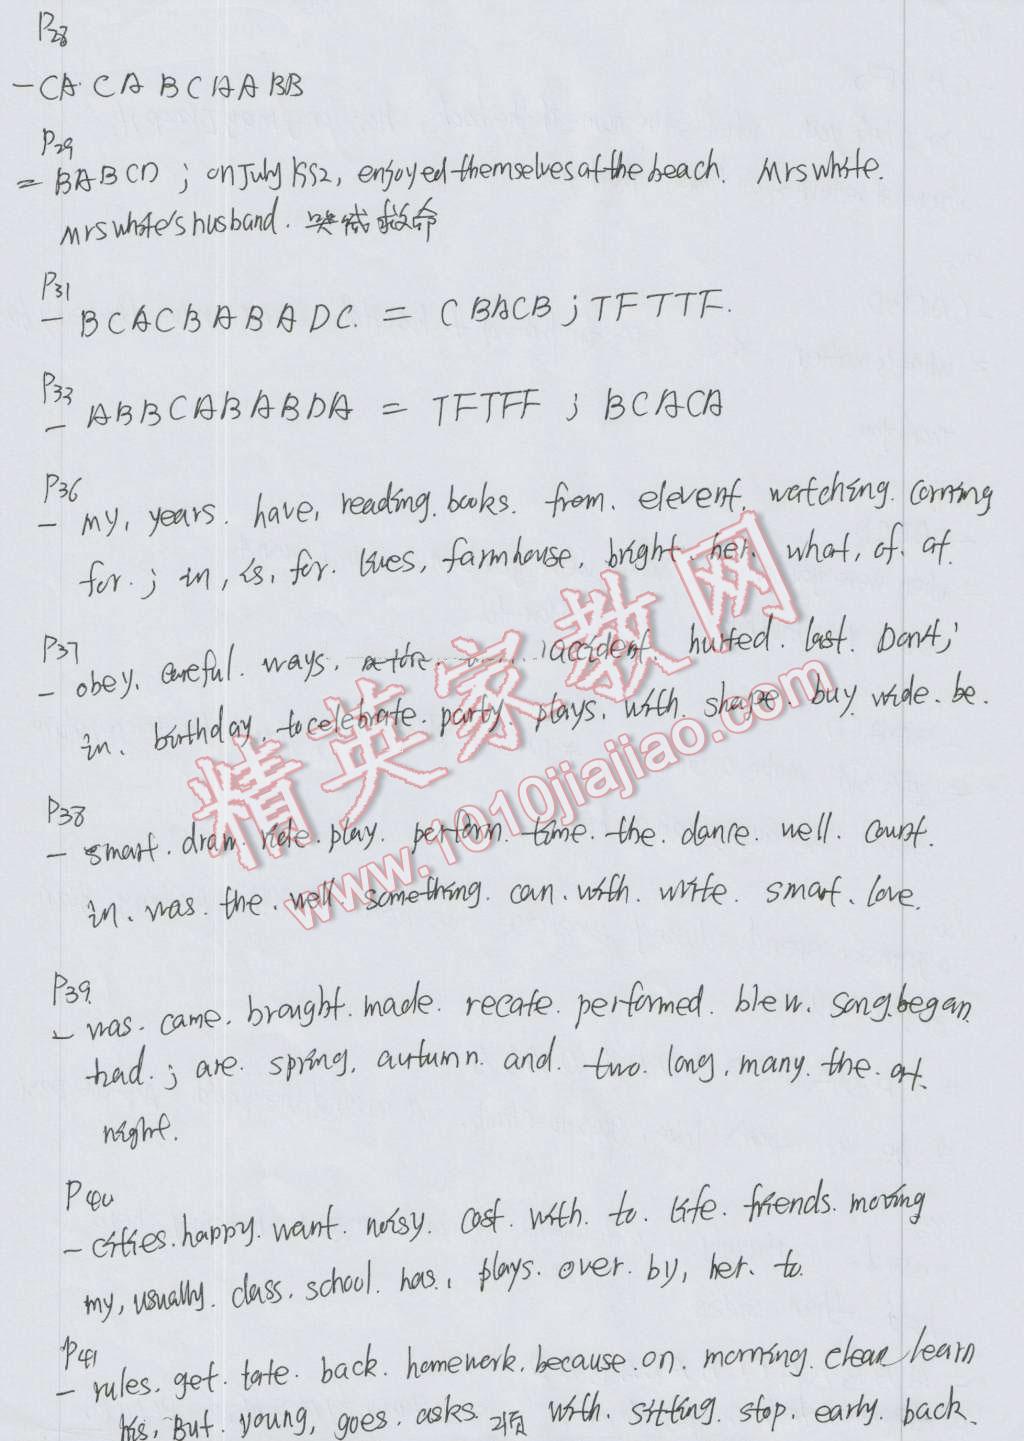 P28
一 CA CA B C A A BB
P29
= BABCD ; on July 1552, enjoyed themselves at the beach. Mrs white.
Mrs white's husband. 哭喊救命
P31
一 BCACBABADC. = CBACB ; TFTTF.
P33
一 ABBCABABDA = TFTFF ; BCACA
P36
一 my, years. have, reading. books. from. elevent. watching. coming
for. ; in, is, for. lives, farmhouse, bright. her. what, of. at.
P37
一 obey. careful. ways. accident. hurted. last. Don't;
in. birthday. to celebrate. party. plays. with. shape. buy. wide. be.
P38
一 smart. draw. ride. play. perform. time. the. dance. well. count.
in. was. the. well something. can. with. write. smart. love.
P39
一 was. came. brought. made. recate. performed. blew. song. began.
had. ; are. spring. autumn. and. two. long. many. the. at.
night.
P40
一 cities. happy. want. noisy. cost. with. to. life. friends. moving
my, usually. class. school. has. plays. over. by, her. to.
P41
一 rules. get. tate. back. homework. because. on. morning. clean learn
his, But. young, goes. asks. with. sitting. stop. early. back.
精英家教网
www.1010jiajiao.com